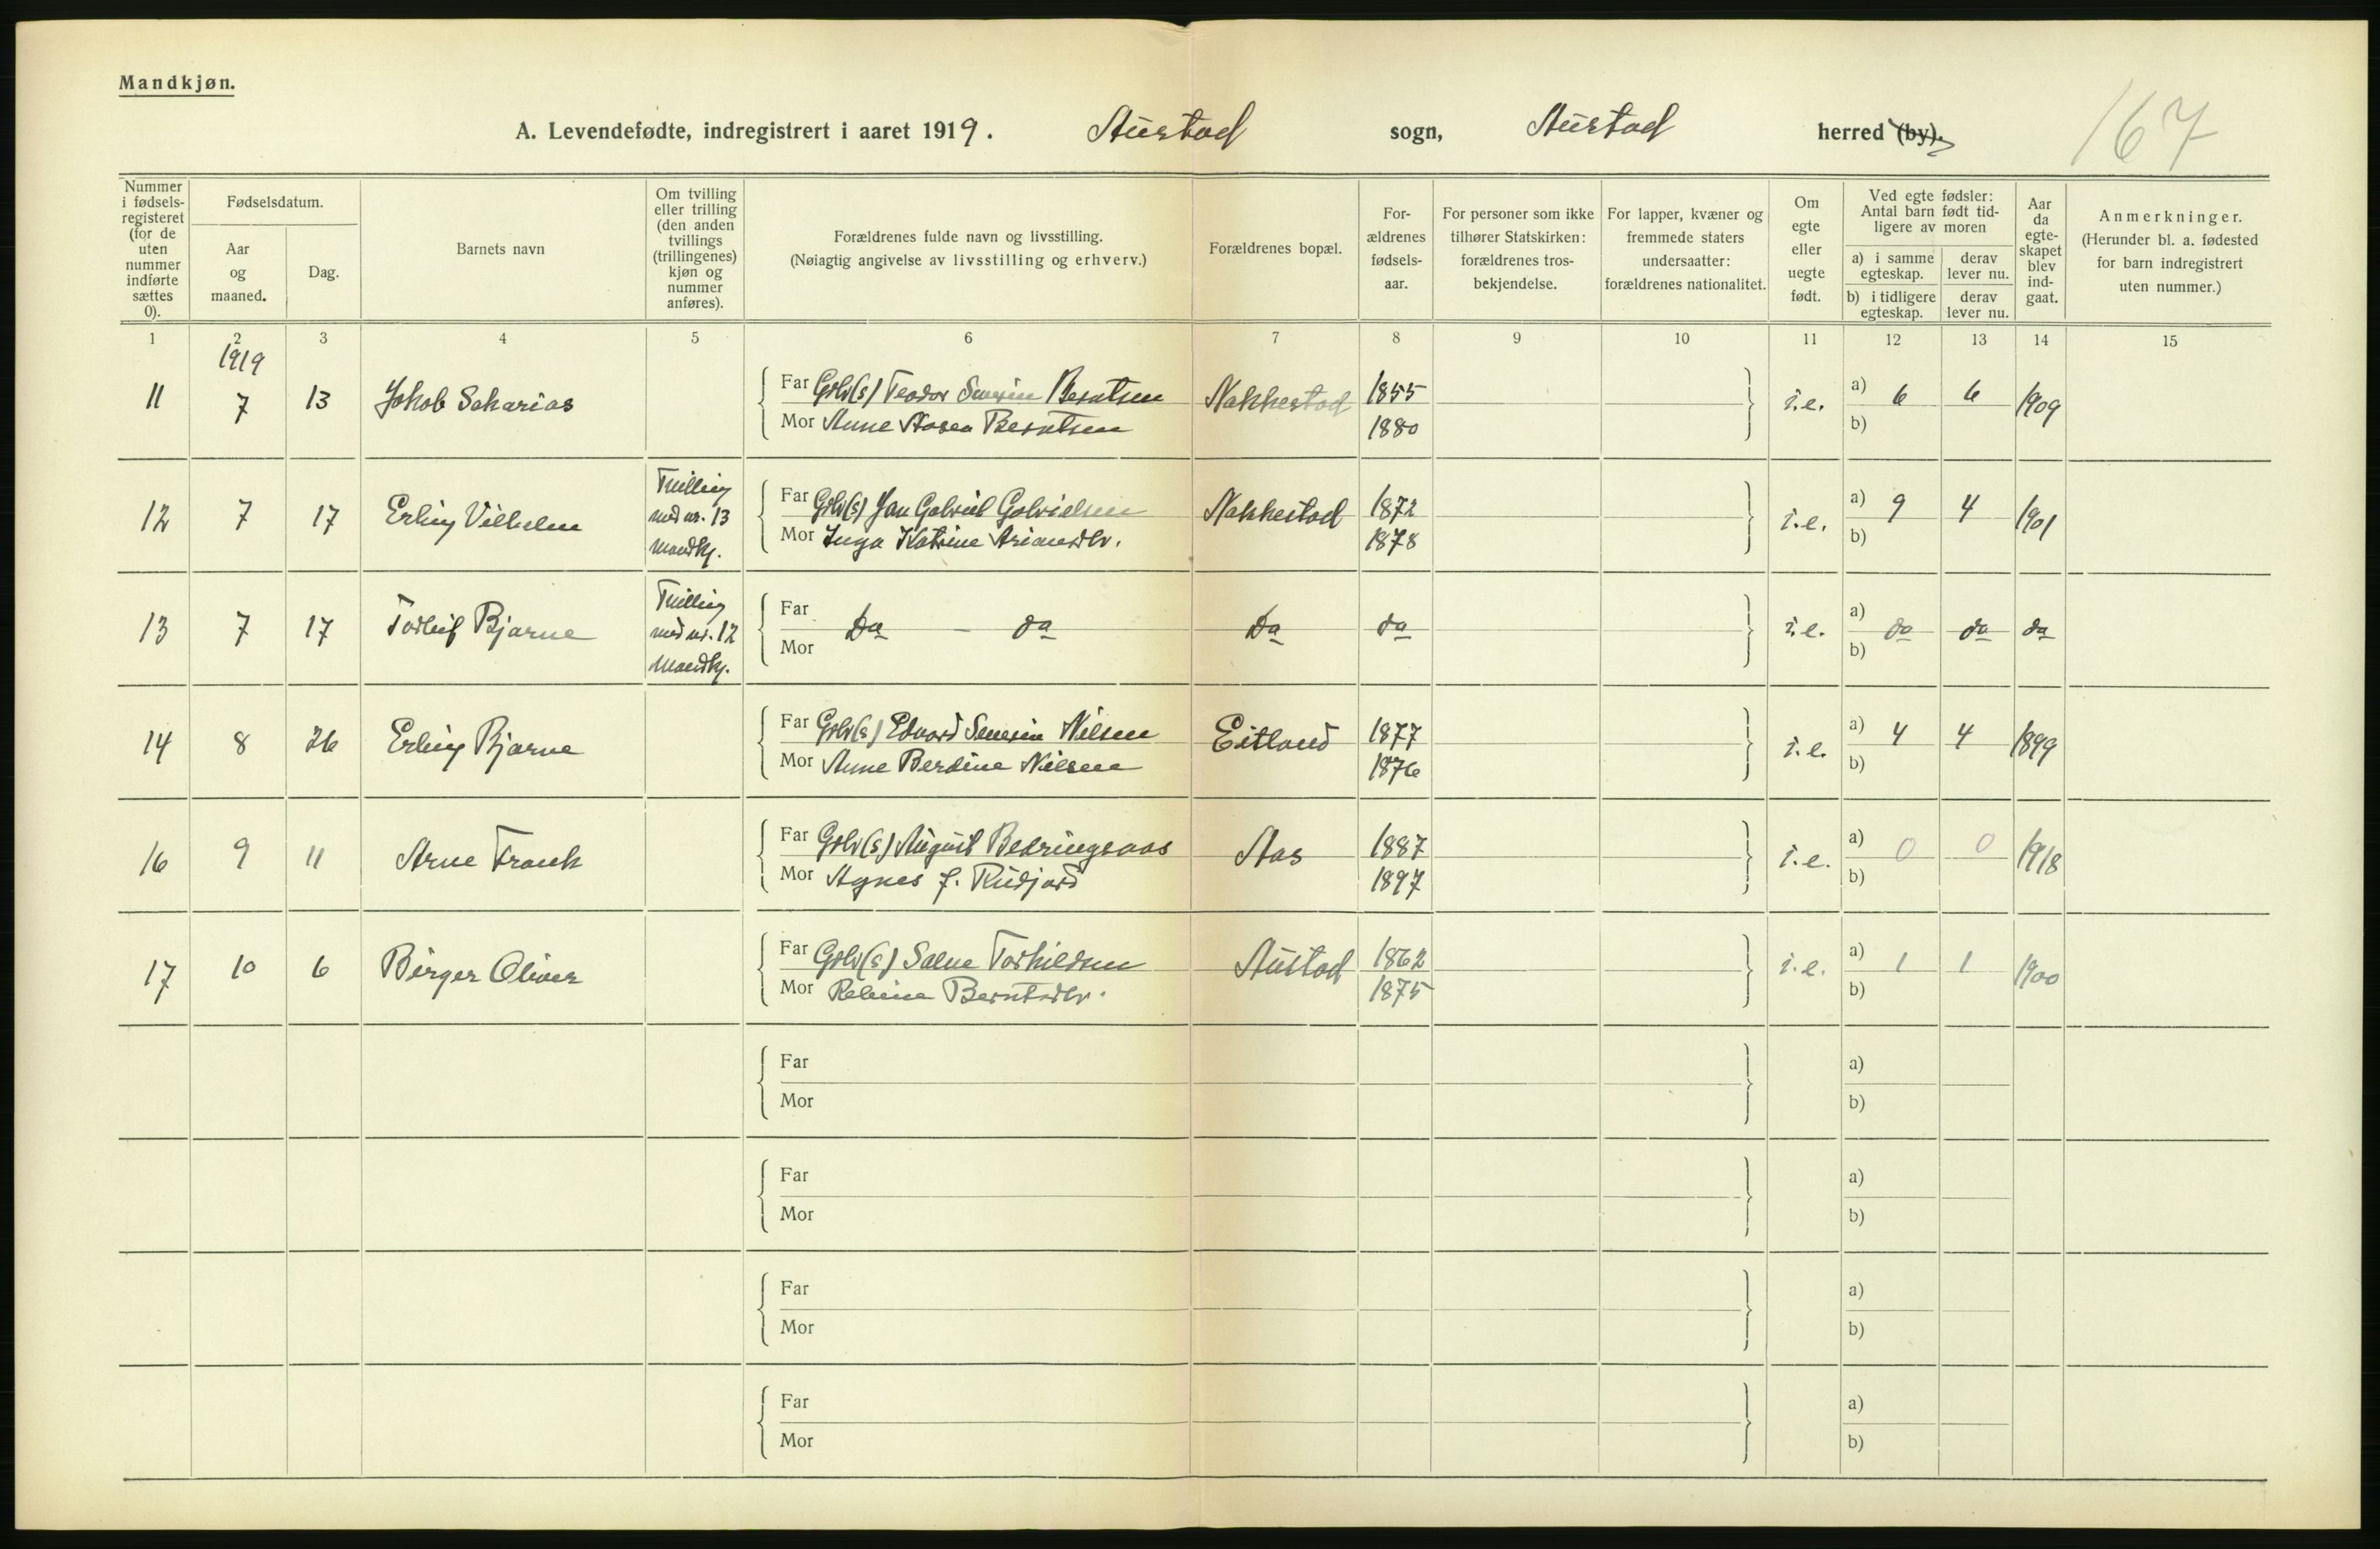 Mandkjøn.
A. Levendefødte, indregistrert i aaret 1919. Austad sogn, Austad herred (by). 167
Nummer i fødselsregisteret (for de uten nummer indførte sættes 0).
Fødselsdatum.
Aar og maaned.
Dag.
Barnets navn
Om tvilling eller trilling (den anden tvillings (trillingenes) kjøn og nummer anføres).
Forældrenes fulde navn og livsstilling.
(Nøiagtig angivelse av livsstilling og erhverv.)
Forældrenes bopæl.
Forældrenes fødselsaar.
For personer som ikke tilhører Statskirken: forældrenes trosbekjendelse.
For lapper, kvæner og fremmede staters undersaatter: forældrenes nationalitet.
Om egte eller uegte født.
Ved egte fødsler: Antal barn født tidligere av moren
a) i samme egteskap. derav lever nu.
b) i tidligere egteskap. derav lever nu.
Aar da egteskapet blev indgaat.
Anmerkninger.
(Herunder bl. a. fødested for barn indregistrert uten nummer.)
1 2 3 4 5 6 7 8 9 10 11 12 13 14 15
1919
11 7 13 Jakob Sakarias Far Grbr(s) Teodor Severin Berntsen Nakkestad 1855 i.e. a) 6 6 1909
Mor Anne Aasea Berntsen 1880 b)
12 7 17 Erling Vilhelm Tvilling med nr. 13 mandkj. Far Grbr(s) Jan Gabriel Gabrielsen Nakkestad 1872 i.e. a) 9 4 1901
Mor Inga Katrine Ariansdtr. 1878 b)
13 7 17 Torleif Bjarne Tvilling med nr. 12 Mandkj. Far Da — da Da da i.e. a) da da da
Mor b)
14 8 26 Erling Bjarne Far Grbr(s) Edvard Severin Nilsen Eitland 1877 i.e. a) 4 4 1899
Mor Anne Berdine Nilsen 1876 b)
16 9 11 Arne Frank Far Grbr(s) August Bedringsaas Aas 1887 i.e. a) 0 0 1918
Mor Agnes f. Rudjord 1897 b)
17 10 6 Birger Oliver Far Grbr(s) Salve Torkildsen Austad 1862 i.e. a) 1 1 1900
Mor Berntsdtr. 1875 b)
Far a)
Mor b)
Far a)
Mor b)
Far a)
Mor b)
Far a)
Mor b)